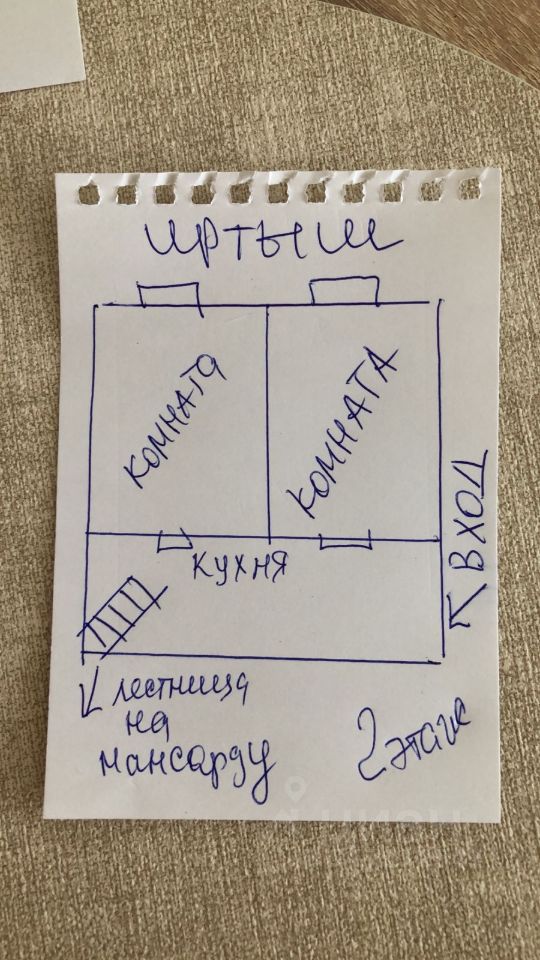 ИРТЫШ
КОМНАТА
КОМНАТА
ВХОД
КУХНЯ
лестница
на
мансарду
2 этаж
циан